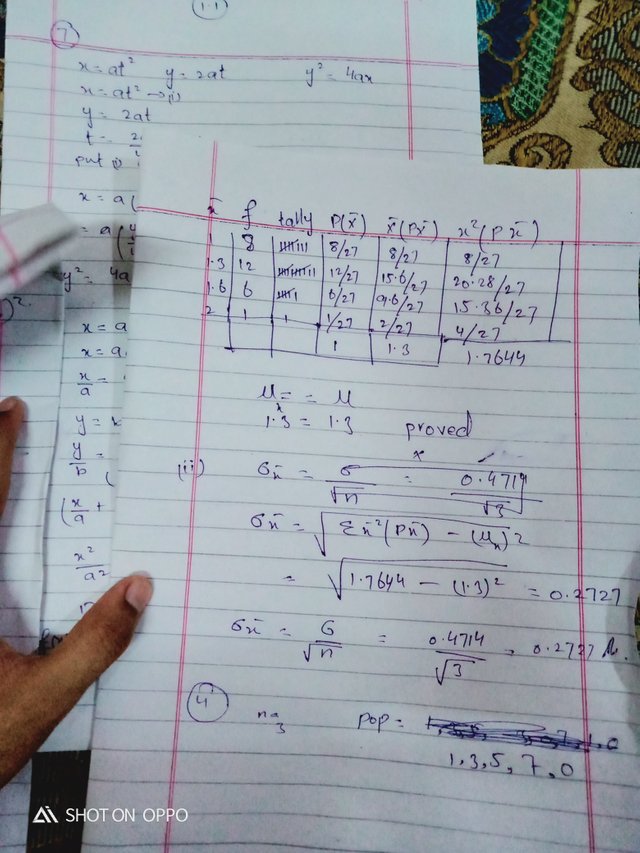 1.1
7
x = at² y = 2at y² = 4ax
x = at² → (i)
y = 2at
t =
put (i)
x = a(
= a(
y² = 4a
x = a
x = a
x/a =
y = x
y/b =
(x/a +
x²/a²
x̄ f tally P(x̄) x̄(Px̄) x²(Px̄)
1 8 8/27 8/27 8/27
1.3 12 12/27 15.6/27 20.28/27
1.6 6 6/27 9.6/27 15.36/27
2 1 1 1/27 2/27 4/27
1 1.3 1.7644
μx̄ = μ
1.3 = 1.3 proved
(ii) σx̄ = σ/√n = 0.4714/√3
σx̄ = √Σx̄²(Px̄) - (μx)²
= √1.7644 - (1.3)² = 0.2727
σx̄ = σ/√n = 0.4714/√3 = 0.2727
4 n=3 pop =
1,3,5,7,0
SHOT ON OPPO